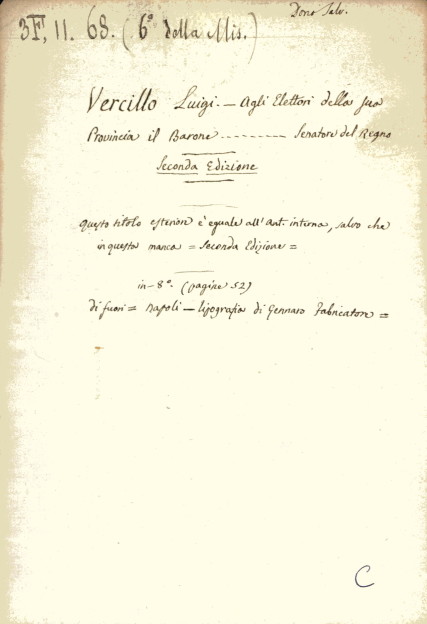 Dono Salv.
3F, 11. 68. (6° della Mis.)
Vercillo Luigi. — Agli Elettori della sua
Provincia il Barone .......... Senatore del Regno
Seconda Edizione
questo titolo esteriore è eguale all'Ant. interna, salvo che
in questa manca = Seconda Edizione =
in-8°. (pagine 52)
di fuori = Napoli — tipografia di Gennaro Fabricatore =
C